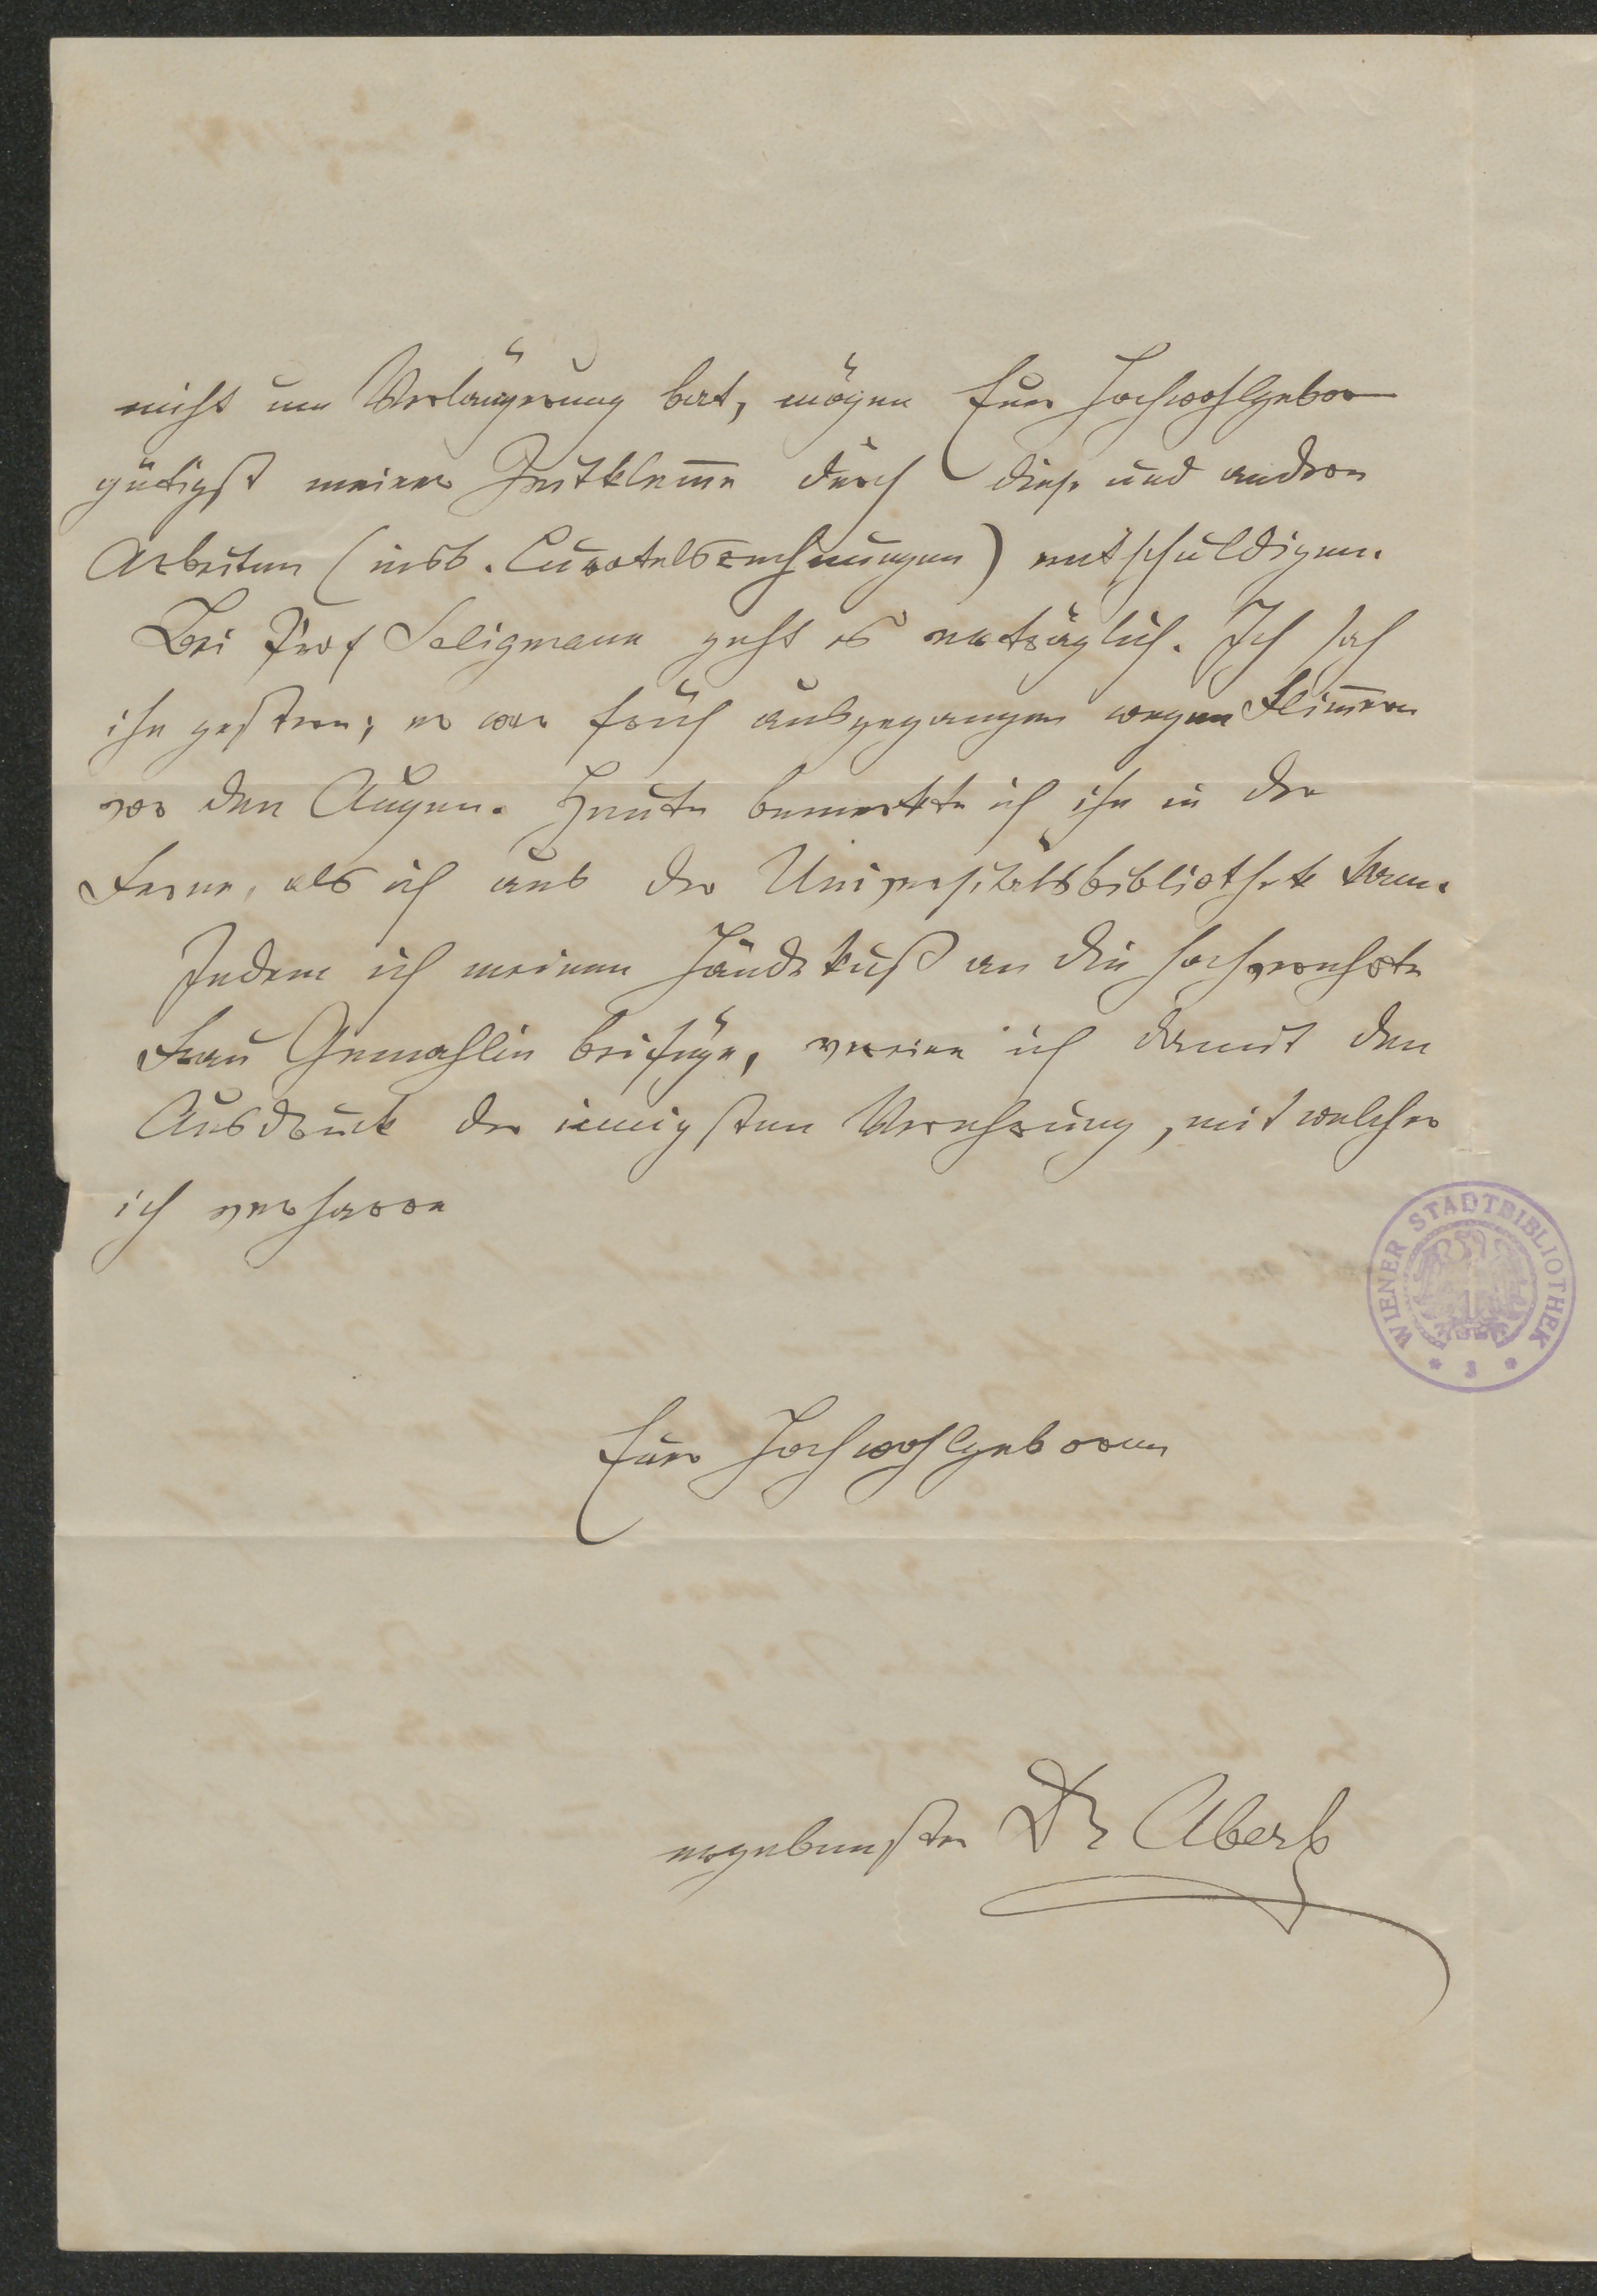 nicht um Verlängerung bat, mögen Euer Hochwohlgebor
gütigst meiner Zeitklem̅e durch diese und andere
Arbeiten (insb. Curatelsrechnungen) entschuldigen.
Bei Prof Seligmann geht es erträglich. Ich sah
ihn gestern; er war früh ausgegangen wegen Flim̅ern
vor den Augen. Heute bemerkte ich ihn in der
Ferne, als ich aus der Universitätsbibliothek kam.
Indem ich meinen Handkuß an die hochverehrte
Frau Gemahlin beifüge, vereine ich damit den
Ausdruck der innigsten Verehrung, mit welcher
ich verharre
WIENER STADTBIBLIOTHEK
Euer Hochwohlgeboren
ergebenster Dr Aberle